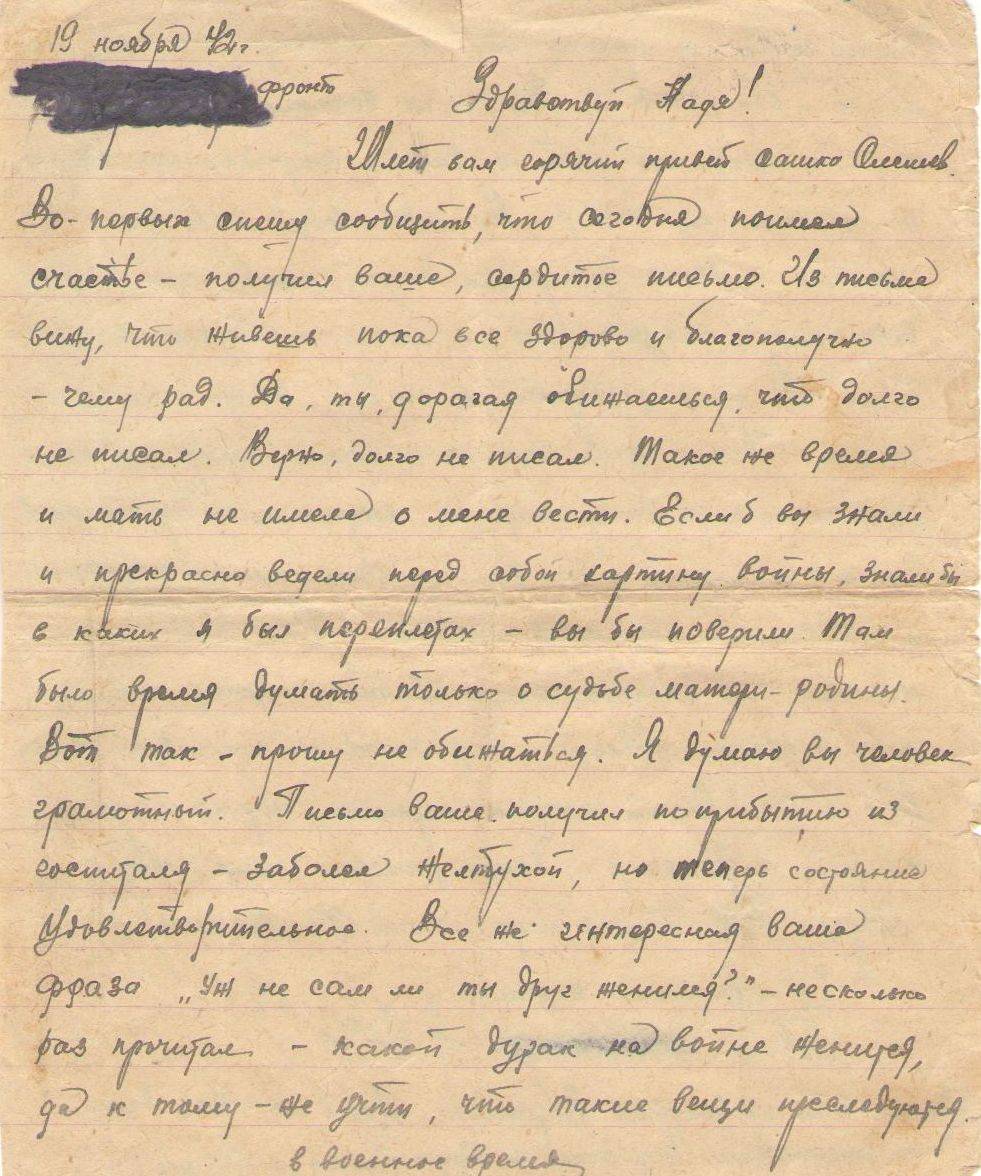 19 ноября 42г.
фронт
Здравствуй Надя!
Шлет вам горячий привет Сашко
Во-первых спешу сообщить, что сегодня поимел
счастье – получил ваше, сердитое письмо. Из письма
вижу, что живешь пока все здорово и благополучно
– чему рад. Да, ты, дорагая обижаешься, что долго
не писал. Верно, долго не писал. Такое же время
и мать не имела о мене вести. Если б вы знали
и прекрасно ведели перед собой картину войны, знали бы
в каких я был переплетах – вы бы поверили. Там
было время думать только о судьбе матери-родины.
Вот так – прошу не обижаться. Я думаю вы человек
грамотный. Письмо ваше получил по прибытию из
госпиталя – заболел желтухой, но теперь состояние
удовлетворительное. Все же интересная ваша
фраза „Уж не сам ли ты друг женился?" – несколько
раз прочитал – какой дурак на войне женится,
да к тому-же учти, что такие вещи преследуются
в военное время